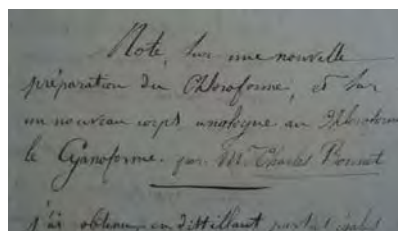 Note, Sur une nouvelle
préparation du Chloroforme, et Sur
un nouveau corps analogue au Chloroforme
le Cyanoforme. par Mr. Charles Bonnet
j'ai obtenu en distillant parties égales